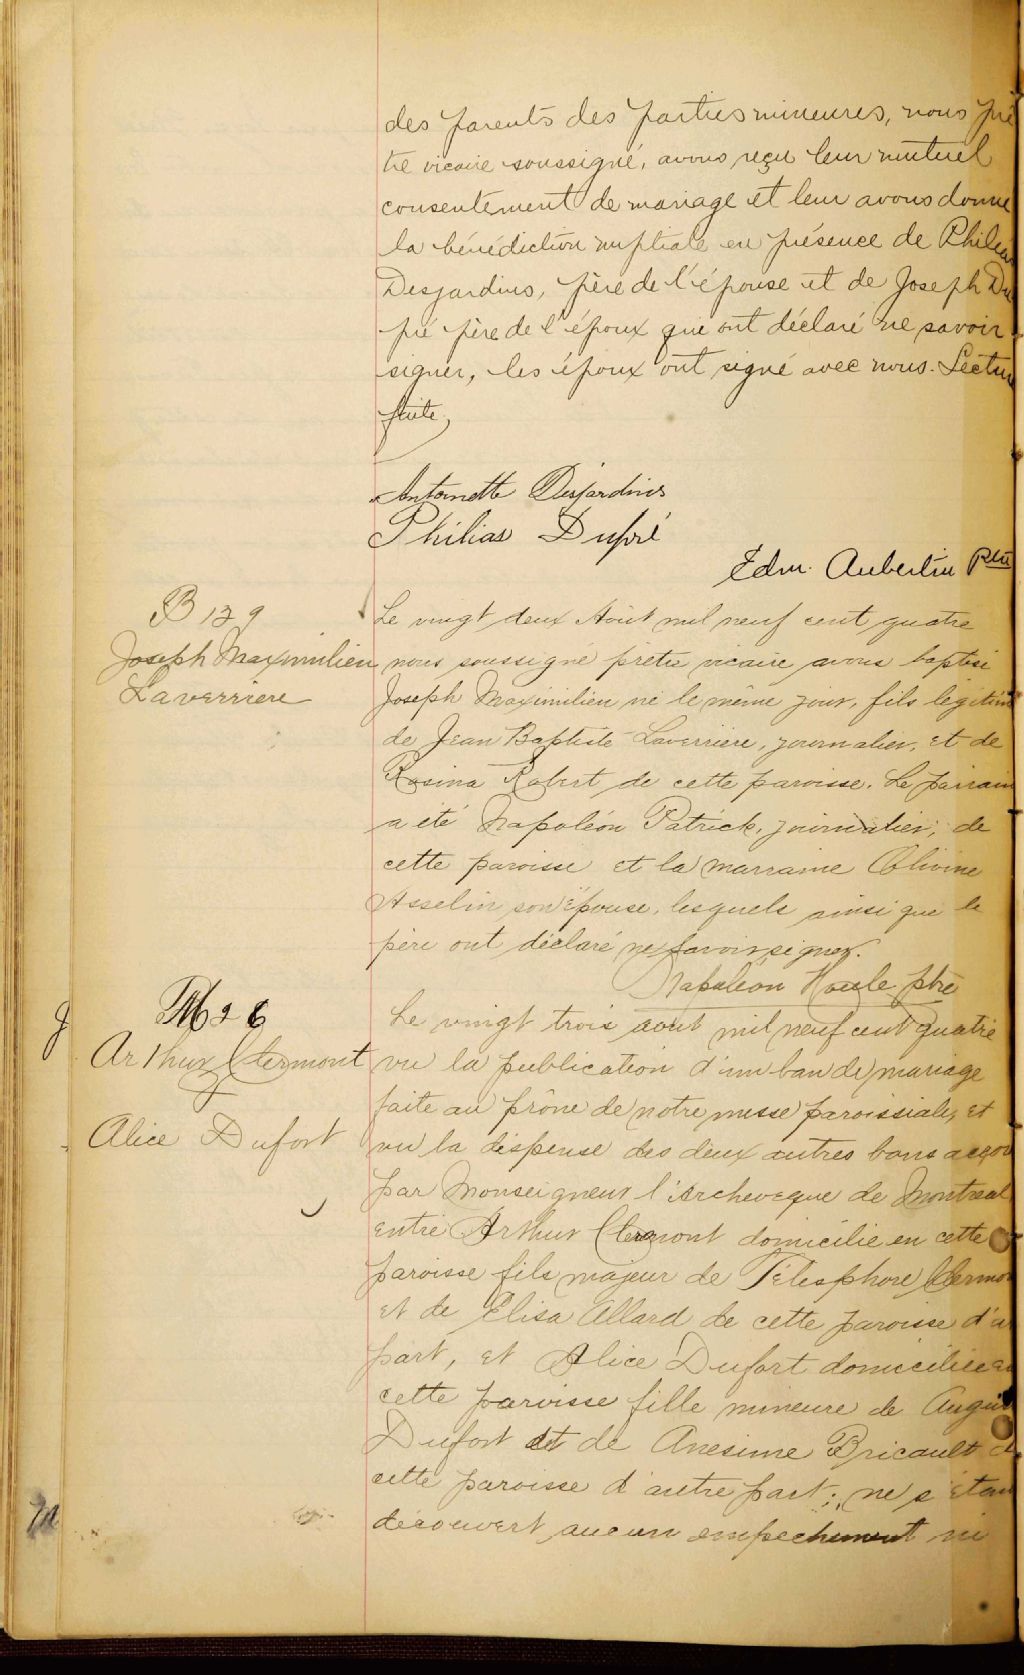 des parents des parties mineures, nous prê
tre vicaire soussigné, avons reçu leur mutuel
consentement de mariage et leur avons donné
la bénédiction nuptiale en présence de Philéas
Desjardins, père de l'épouse et de Joseph Du
pré père de l'époux qui ont déclaré ne savoir
signer, les époux ont signé avec nous. Lecture
faite,
Antoinette Desjardins
Philias Dupré
Edm. Aubertin Ptre
B 129
Joseph Maximilien
Laverriere
Le vingt deux Août mil neuf cent quatre
nous soussigné prêtre vicaire avons baptisé
Joseph Maximilien né le même jour, fils légitime
de Jean Baptiste Laverriere, journalier, et de
Rosina Robert de cette paroisse. Le parrain
a été Napoléon Patrick, journalier, de
cette paroisse et la marraine Olivine
Asselin son épouse, lesquels ainsi que le
père ont déclaré ne savoir signer.
Napoléon Houle ptre
M 26
Arthur Clermont
Alice Dufort
Le vingt trois aout mil neuf cent quatre
vu la publication d'un ban de mariage
faite au prône de notre messe paroissiale, et
vu la dispense des deux autres bans accor
par Monseigneur l'Archeveque de Montreal
entre Arthur Clermont domicilié en cette
paroisse fils majeur de Télesphore Clermon
et de Elisa Allard de cette paroisse d'u
part, et Alice Dufort domiciliée en
cette paroisse fille mineure de
Dufort et de Anesime Bricault d
cette paroisse d'autre part; ne s'étant
découvert aucun empechement ni